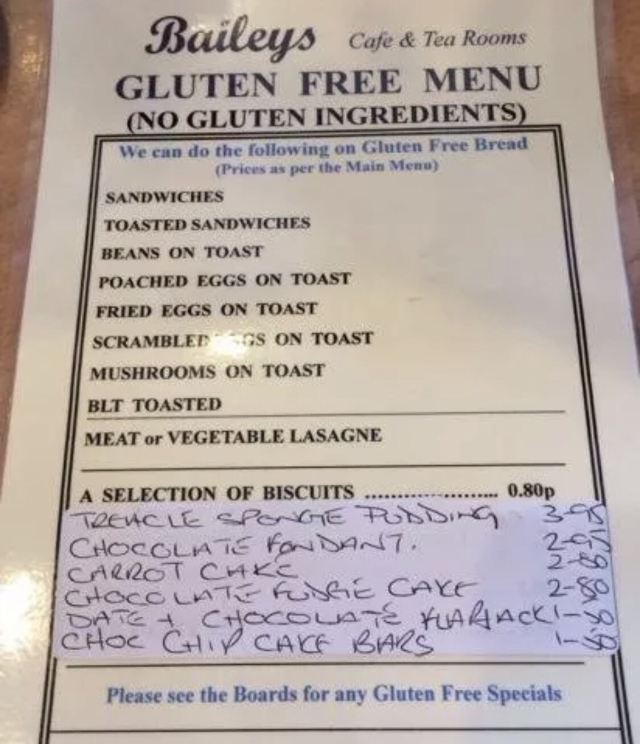 Baileys Cafe & Tea Rooms
GLUTEN FREE MENU
(NO GLUTEN INGREDIENTS)
We can do the following on Gluten Free Bread
(Prices as per the Main Menu)
SANDWICHES
TOASTED SANDWICHES
BEANS ON TOAST
POACHED EGGS ON TOAST
FRIED EGGS ON TOAST
SCRAMBLED EGGS ON TOAST
MUSHROOMS ON TOAST
BLT TOASTED
MEAT or VEGETABLE LASAGNE
A SELECTION OF BISCUITS ........................ 0.80p
TREACLE SPONGE PUDDING 3-95
CHOCOLATE FONDANT. 2-95
CARROT CAKE 2-80
CHOCOLATE FUDGE CAKE 2-80
DATE + CHOCOLATE FLAPJACK 1-50
CHOC CHIP CAKE BARS 1-50
Please see the Boards for any Gluten Free Specials